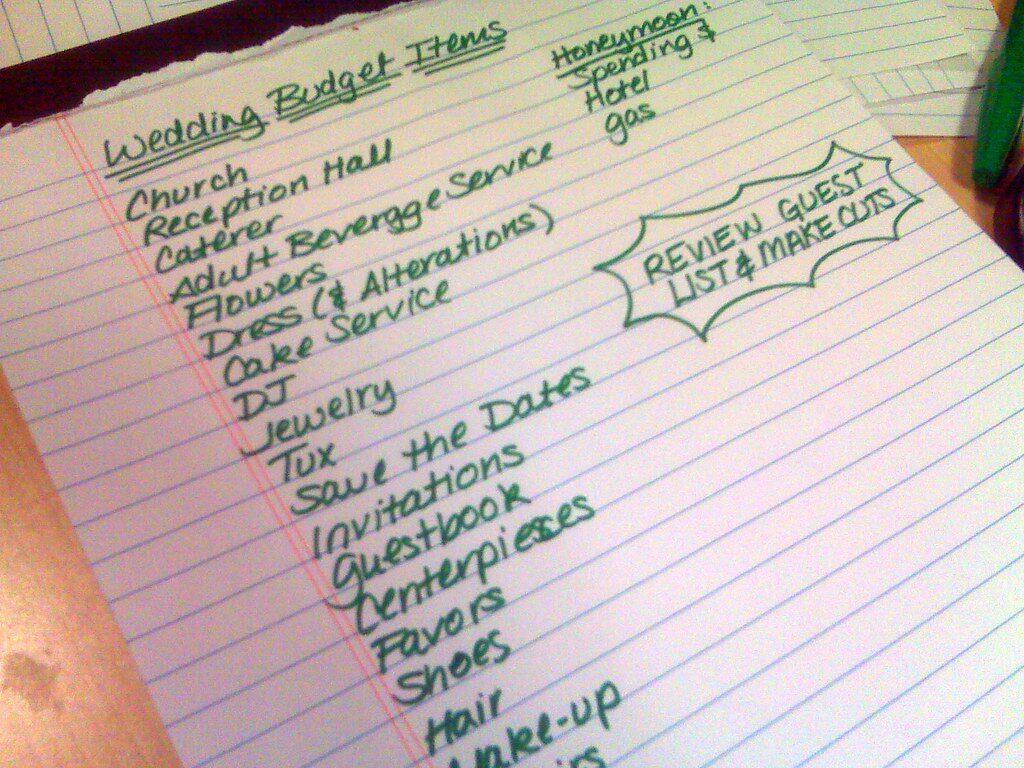 Wedding Budget Items
Church
Reception Hall
Caterer
Adult Beverage Service
Flowers
Dress (& Alterations)
Cake Service
DJ
Jewelry
Tux
Save the Dates
Invitations
Guestbook
Centerpieses
Favors
Shoes
Hair
Make-up
Honeymoon:
Spending &
Hotel
gas
REVIEW GUEST
LIST & MAKE CUTS